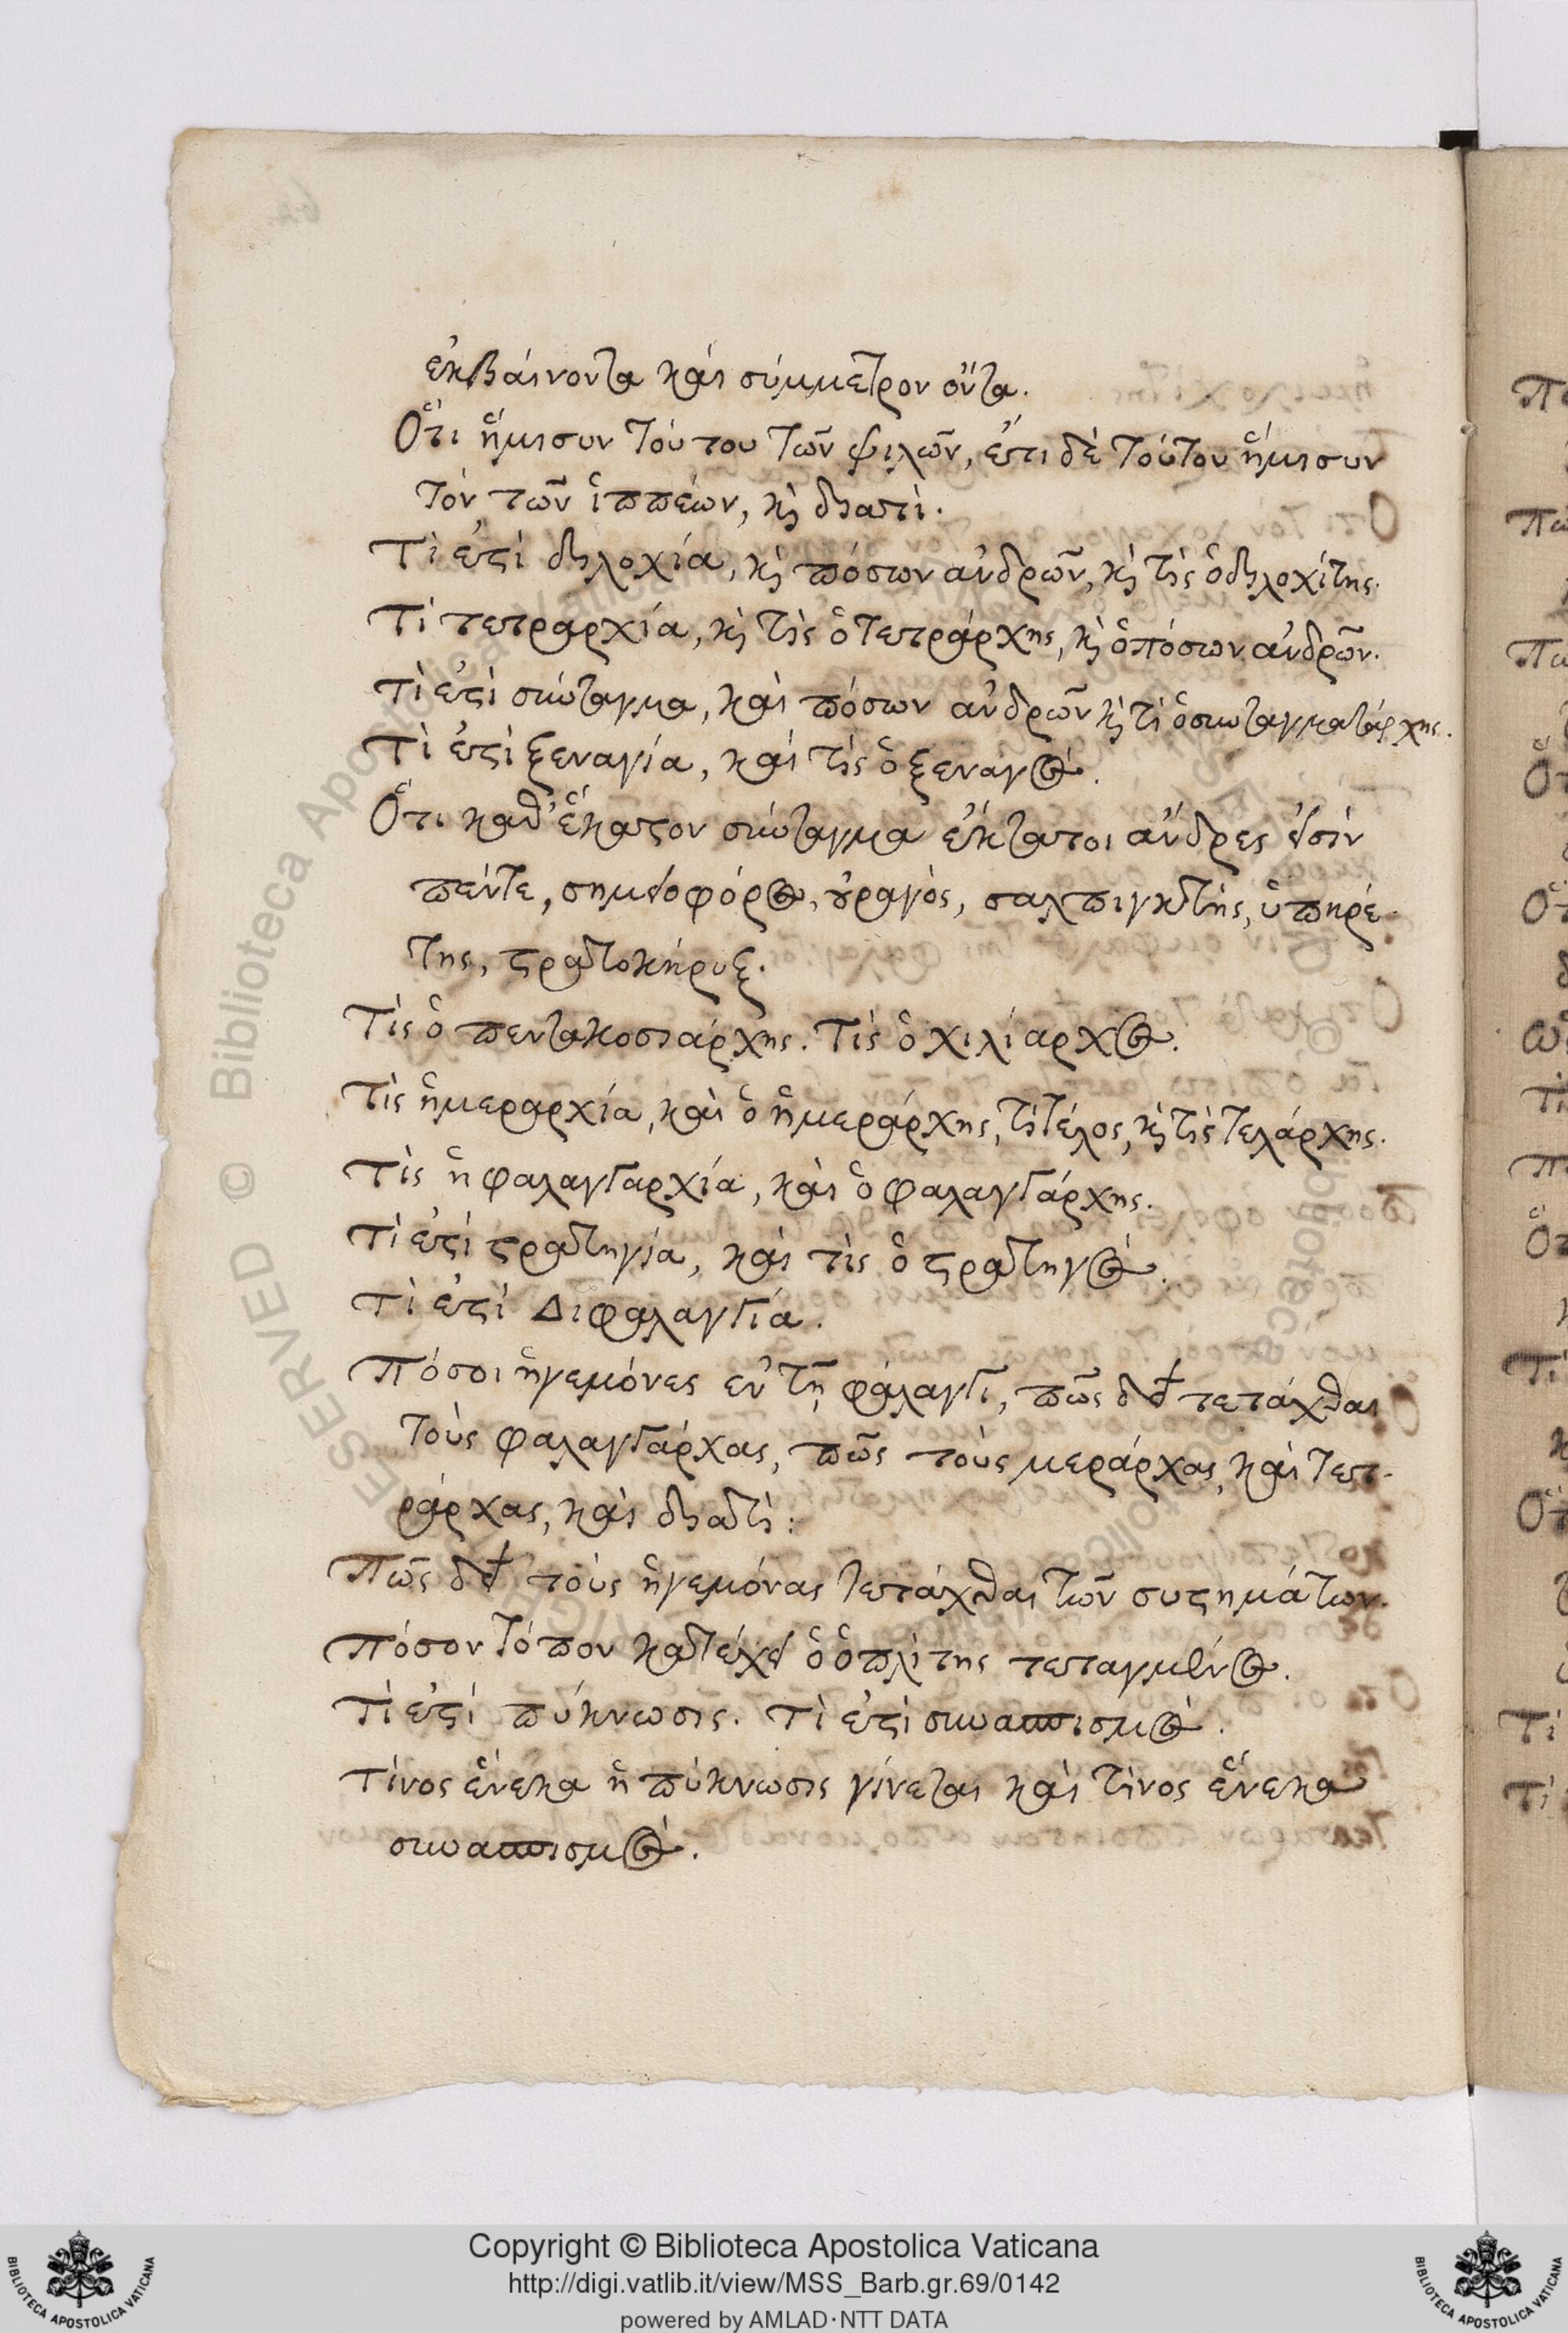 ἐκβαίνοντα καὶ σύμμετρον ὄντα.
Ὅτι ἥμισυν τούτου τῶν ψιλῶν, ἔτι δὲ τούτου ἥμισυν
τὸν τῶν ἱππέων, κὶ διατὶ.
Τὶ ἐστὶ διλοχία, κὶ πόσων ἀνδρῶν, κὶ τὶς ὁ διλοχίτης.
Τὶ τετραρχία, κὶ τὶς ὁ τετράρχης, κὶ ὁπόσων ἀνδρῶν.
Τὶ ἐστὶ σύνταγμα, καὶ πόσων ἀνδρῶν κὶ τὶ ὁ συνταγματάρχης.
Τὶ ἐστὶ ξεναγία, καὶ τὶς ὁ ξεναγὸς.
Ὅτι καθ' ἕκαστον σύνταγμα ἔκτατοι ἄνδρες εἰσὶν
πέντε, σημειοφόρος, οὐραγὸς, σαλπιγκτὴς, ὑπηρέ-
της, στρατοκήρυξ.
Τὶς ὁ πεντακοσιάρχης. Τὶς ὁ χιλίαρχος.
Τὶς ἡ μεραρχία, καὶ ὁ ἡμεράρχης, τὶ τέλος, κὶ τὶς τελάρχης.
Τὶς ἡ φαλαγγαρχία, καὶ ὁ φαλαγγάρχης.
Τὶ ἐστὶ στρατηγία, καὶ τὶς ὁ στρατηγὸς.
Τὶ ἐστὶ Διφαλαγγία.
Πόσοι ἡγεμόνες ἐν τῇ φάλαγγι, πῶς δεῖ τετάχθαι
τοὺς φαλαγγάρχας, πῶς τοὺς μεράρχας, καὶ τετ-
ράρχας, καὶ διατὶ:
Πῶς δεῖ τοὺς ἡγεμόνας τετάχθαι τῶν συστημάτων.
Πόσον τόπον κατέχει ὁ ὁπλίτης τεταγμένος.
Τὶ ἐστὶ πύκνωσις. Τὶ ἐστὶ συνασπισμὸς.
Τίνος ἕνεκα ἡ πύκνωσις γίνεται καὶ τίνος ἕνεκα
συνασπισμὸς.
Copyright © Biblioteca Apostolica Vaticana
http://digi.vatlib.it/view/MSS_Barb.gr.69/0142
powered by AMLAD·NTT DATA